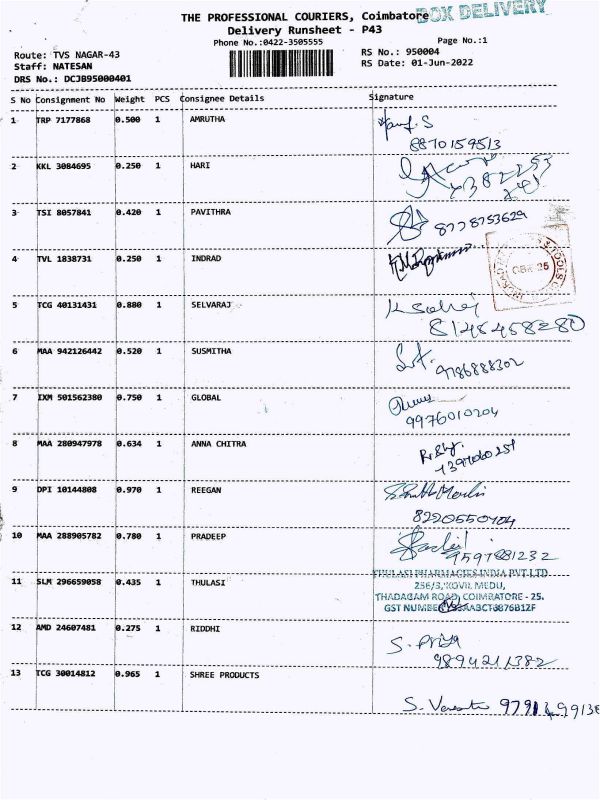 BOX DELIVERY
THE PROFESSIONAL COURIERS, Coimbatore
Delivery Runsheet - P43
Phone No.:0422-3505555
Page No.:1
Route: TVS NAGAR-43
RS No.: 950004
Staff: NATESAN
RS Date: 01-Jun-2022
DRS No.: DCJB95000401
S No Consignment No Weight PCS Consignee Details Signature
1 TRP 7177868 0.500 1 AMRUTHA
8870159513
2 KKL 3084695 0.250 1 HARI
3 TSI 8057841 0.420 1 PAVITHRA
8778753629
4 TVL 1838731 0.250 1 INDRAD
5 TCG 40131431 0.880 1 SELVARAJ
8148458280
6 MAA 942126442 0.520 1 SUSMITHA
9786888302
7 IXM 501562380 0.750 1 GLOBAL
9976010204
8 MAA 280947978 0.634 1 ANNA CHITRA
7397060251
9 DPI 10144808 0.970 1 REEGAN
8220550404
10 MAA 288905782 0.780 1 PRADEEP
9597881232
11 SLM 296659058 0.435 1 THULASI
THULASI PHARMACIES INDIA PVT LTD
256/3, KOVIL MEDU,
THADAGAM ROAD, COIMBATORE - 25.
GST NUMBE
12 AMD 24607481 0.275 1 RIDDHI
S. Priya
9894211382
13 TCG 30014812 0.965 1 SHREE PRODUCTS